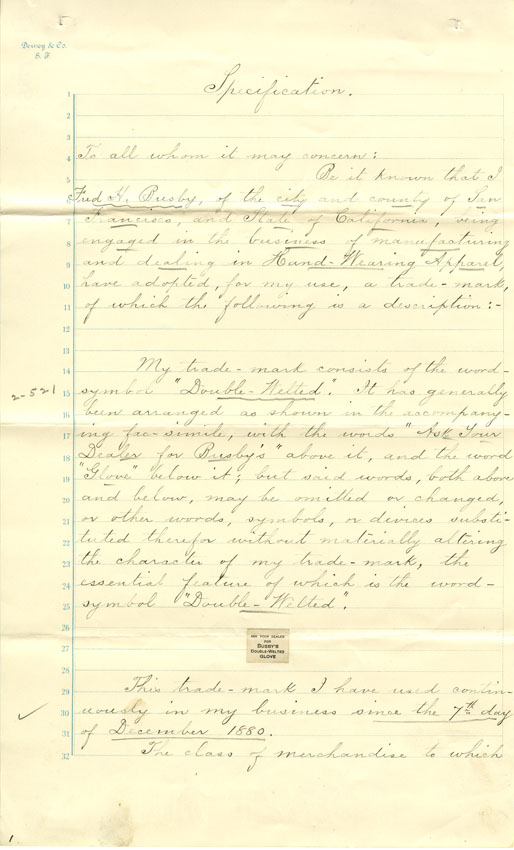 Dewey & Co.
S. F.
Specification.
To all whom it may concern:
Be it known that I
Fred H. Busby, of the city and county of San
Francisco, and State of California, being
engaged in the business of manufacturing
and dealing in Hand-Wearing Apparel,
have adopted, for my use, a trade-mark,
of which the following is a description:-
My trade-mark consists of the word-
symbol "Double-Welted". It has generally
been arranged as shown in the accompany-
ing fac-simile, with the words "Ask Your
Dealer for Busby's" above it, and the word
"Glove" below it; but said words, both above
and below, may be omitted or changed,
or other words, symbols, or devices substi-
tuted therefor without materially altering
the character of my trade-mark, the
essential feature of which is the word-
symbol "Double-Welted".
ASK YOUR DEALER
FOR
BUSBY'S
DOUBLE-WELTED
GLOVE
This trade-mark I have used contin-
uously in my business since the 7th day
of December 1880.
The class of merchandise to which
2-521
1
2
3
4
5
6
7
8
9
10
11
12
13
14
15
16
17
18
19
20
21
22
23
24
25
26
27
28
29
30
31
32
1